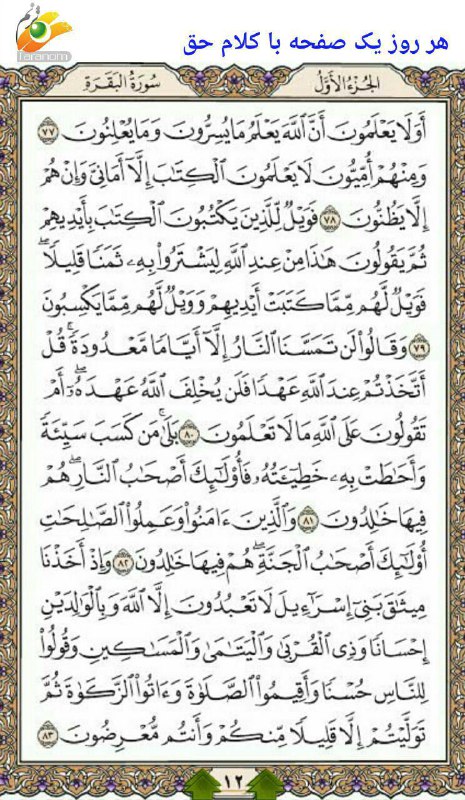 ترنم
taranom
هر روز یک صفحه با کلام حق
الجُزءُ الأوَّلُ
سُورَةُ البَقَرَةِ
أَوَلَا يَعْلَمُونَ أَنَّ اللَّهَ يَعْلَمُ مَا يُسِرُّونَ وَمَا يُعْلِنُونَ ٧٧
وَمِنْهُمْ أُمِّيُّونَ لَا يَعْلَمُونَ الْكِتَٰبَ إِلَّآ أَمَانِيَّ وَإِنْ هُمْ
إِلَّا يَظُنُّونَ ٧٨ فَوَيْلٌ لِّلَّذِينَ يَكْتُبُونَ الْكِتَٰبَ بِأَيْدِيهِمْ
ثُمَّ يَقُولُونَ هَٰذَا مِنْ عِندِ اللَّهِ لِيَشْتَرُوا۟ بِهِۦ ثَمَنًا قَلِيلًا ۖ
فَوَيْلٌ لَّهُم مِّمَّا كَتَبَتْ أَيْدِيهِمْ وَوَيْلٌ لَّهُم مِّمَّا يَكْسِبُونَ
٧٩ وَقَالُوا۟ لَن تَمَسَّنَا النَّارُ إِلَّآ أَيَّامًا مَّعْدُودَةً ۚ قُلْ
أَتَّخَذْتُمْ عِندَ اللَّهِ عَهْدًا فَلَن يُخْلِفَ اللَّهُ عَهْدَهُۥٓ ۖ أَمْ
تَقُولُونَ عَلَى اللَّهِ مَا لَا تَعْلَمُونَ ٨٠ بَلَىٰ ۚ مَن كَسَبَ سَيِّئَةً
وَأَحَٰطَتْ بِهِۦ خَطِيٓئَتُهُۥ فَأُو۟لَٰٓئِكَ أَصْحَٰبُ النَّارِ ۖ هُمْ
فِيهَا خَٰلِدُونَ ٨١ وَالَّذِينَ ءَامَنُوا۟ وَعَمِلُوا۟ الصَّٰلِحَٰتِ
أُو۟لَٰٓئِكَ أَصْحَٰبُ الْجَنَّةِ ۖ هُمْ فِيهَا خَٰلِدُونَ ٨٢ وَإِذْ أَخَذْنَا
مِيثَٰقَ بَنِىٓ إِسْرَٰٓءِيلَ لَا تَعْبُدُونَ إِلَّا اللَّهَ وَبِالْوَٰلِدَيْنِ
إِحْسَانًا وَذِى الْقُرْبَىٰ وَالْيَتَٰمَىٰ وَالْمَسَٰكِينِ وَقُولُوا۟
لِلنَّاسِ حُسْنًا وَأَقِيمُوا۟ الصَّلَوٰةَ وَءَاتُوا۟ الزَّكَوٰةَ ثُمَّ
تَوَلَّيْتُمْ إِلَّا قَلِيلًا مِّنكُمْ وَأَنتُم مُّعْرِضُونَ ٨٣
١٢